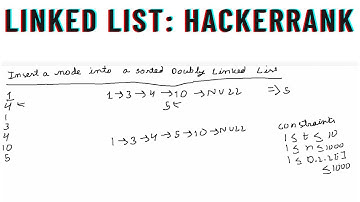 LINKED LIST: HACKERRANK
Insert a node into a sorted Doubly Linked List
1
4
1
3
4
10
5
1→3→4→10→NULL ⇒5
5
1→3→4→5→10→NULL
constraints
1 ≤ t ≤ 10
1 ≤ n ≤ 1000
≤ 1000